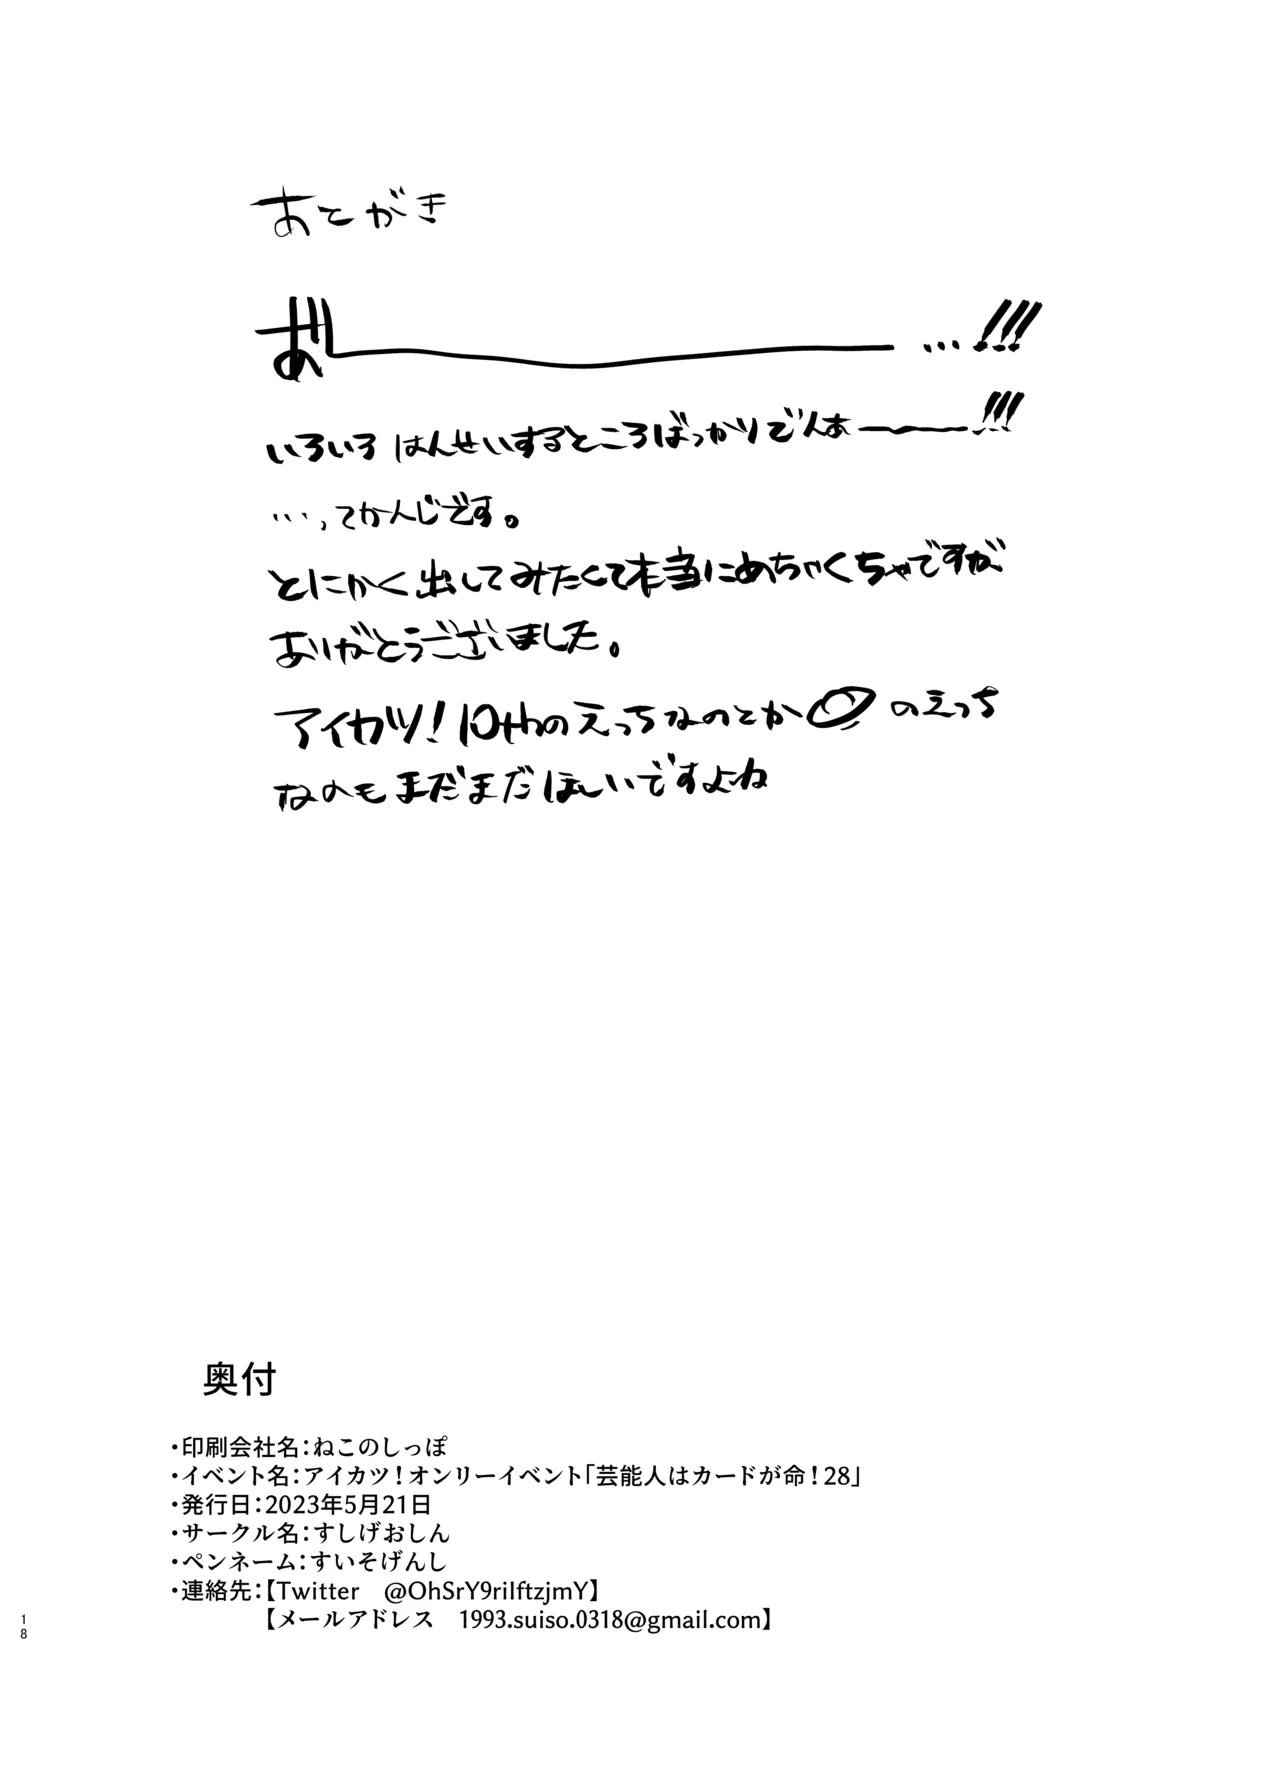 あとがき
あ゛ー…!!!
いろいろ はんせいするところばっかりでんあ゛ー!!!
…、てかんじです。
とにかく出してみたくて本当にめちゃくちゃですが
ありがとうございました。
アイカツ!10thのえっちなのとか のえっち
なのもまだまだほしいですよね
奥付
・印刷会社名：ねこのしっぽ
・イベント名：アイカツ！オンリーイベント「芸能人はカードが命！28」
・発行日：2023年5月21日
・サークル名：すしげおしん
・ペンネーム：すいそげんし
・連絡先：【Twitter　@OhSrY9riIftzjmY】
【メールアドレス　1993.suiso.0318@gmail.com】
18